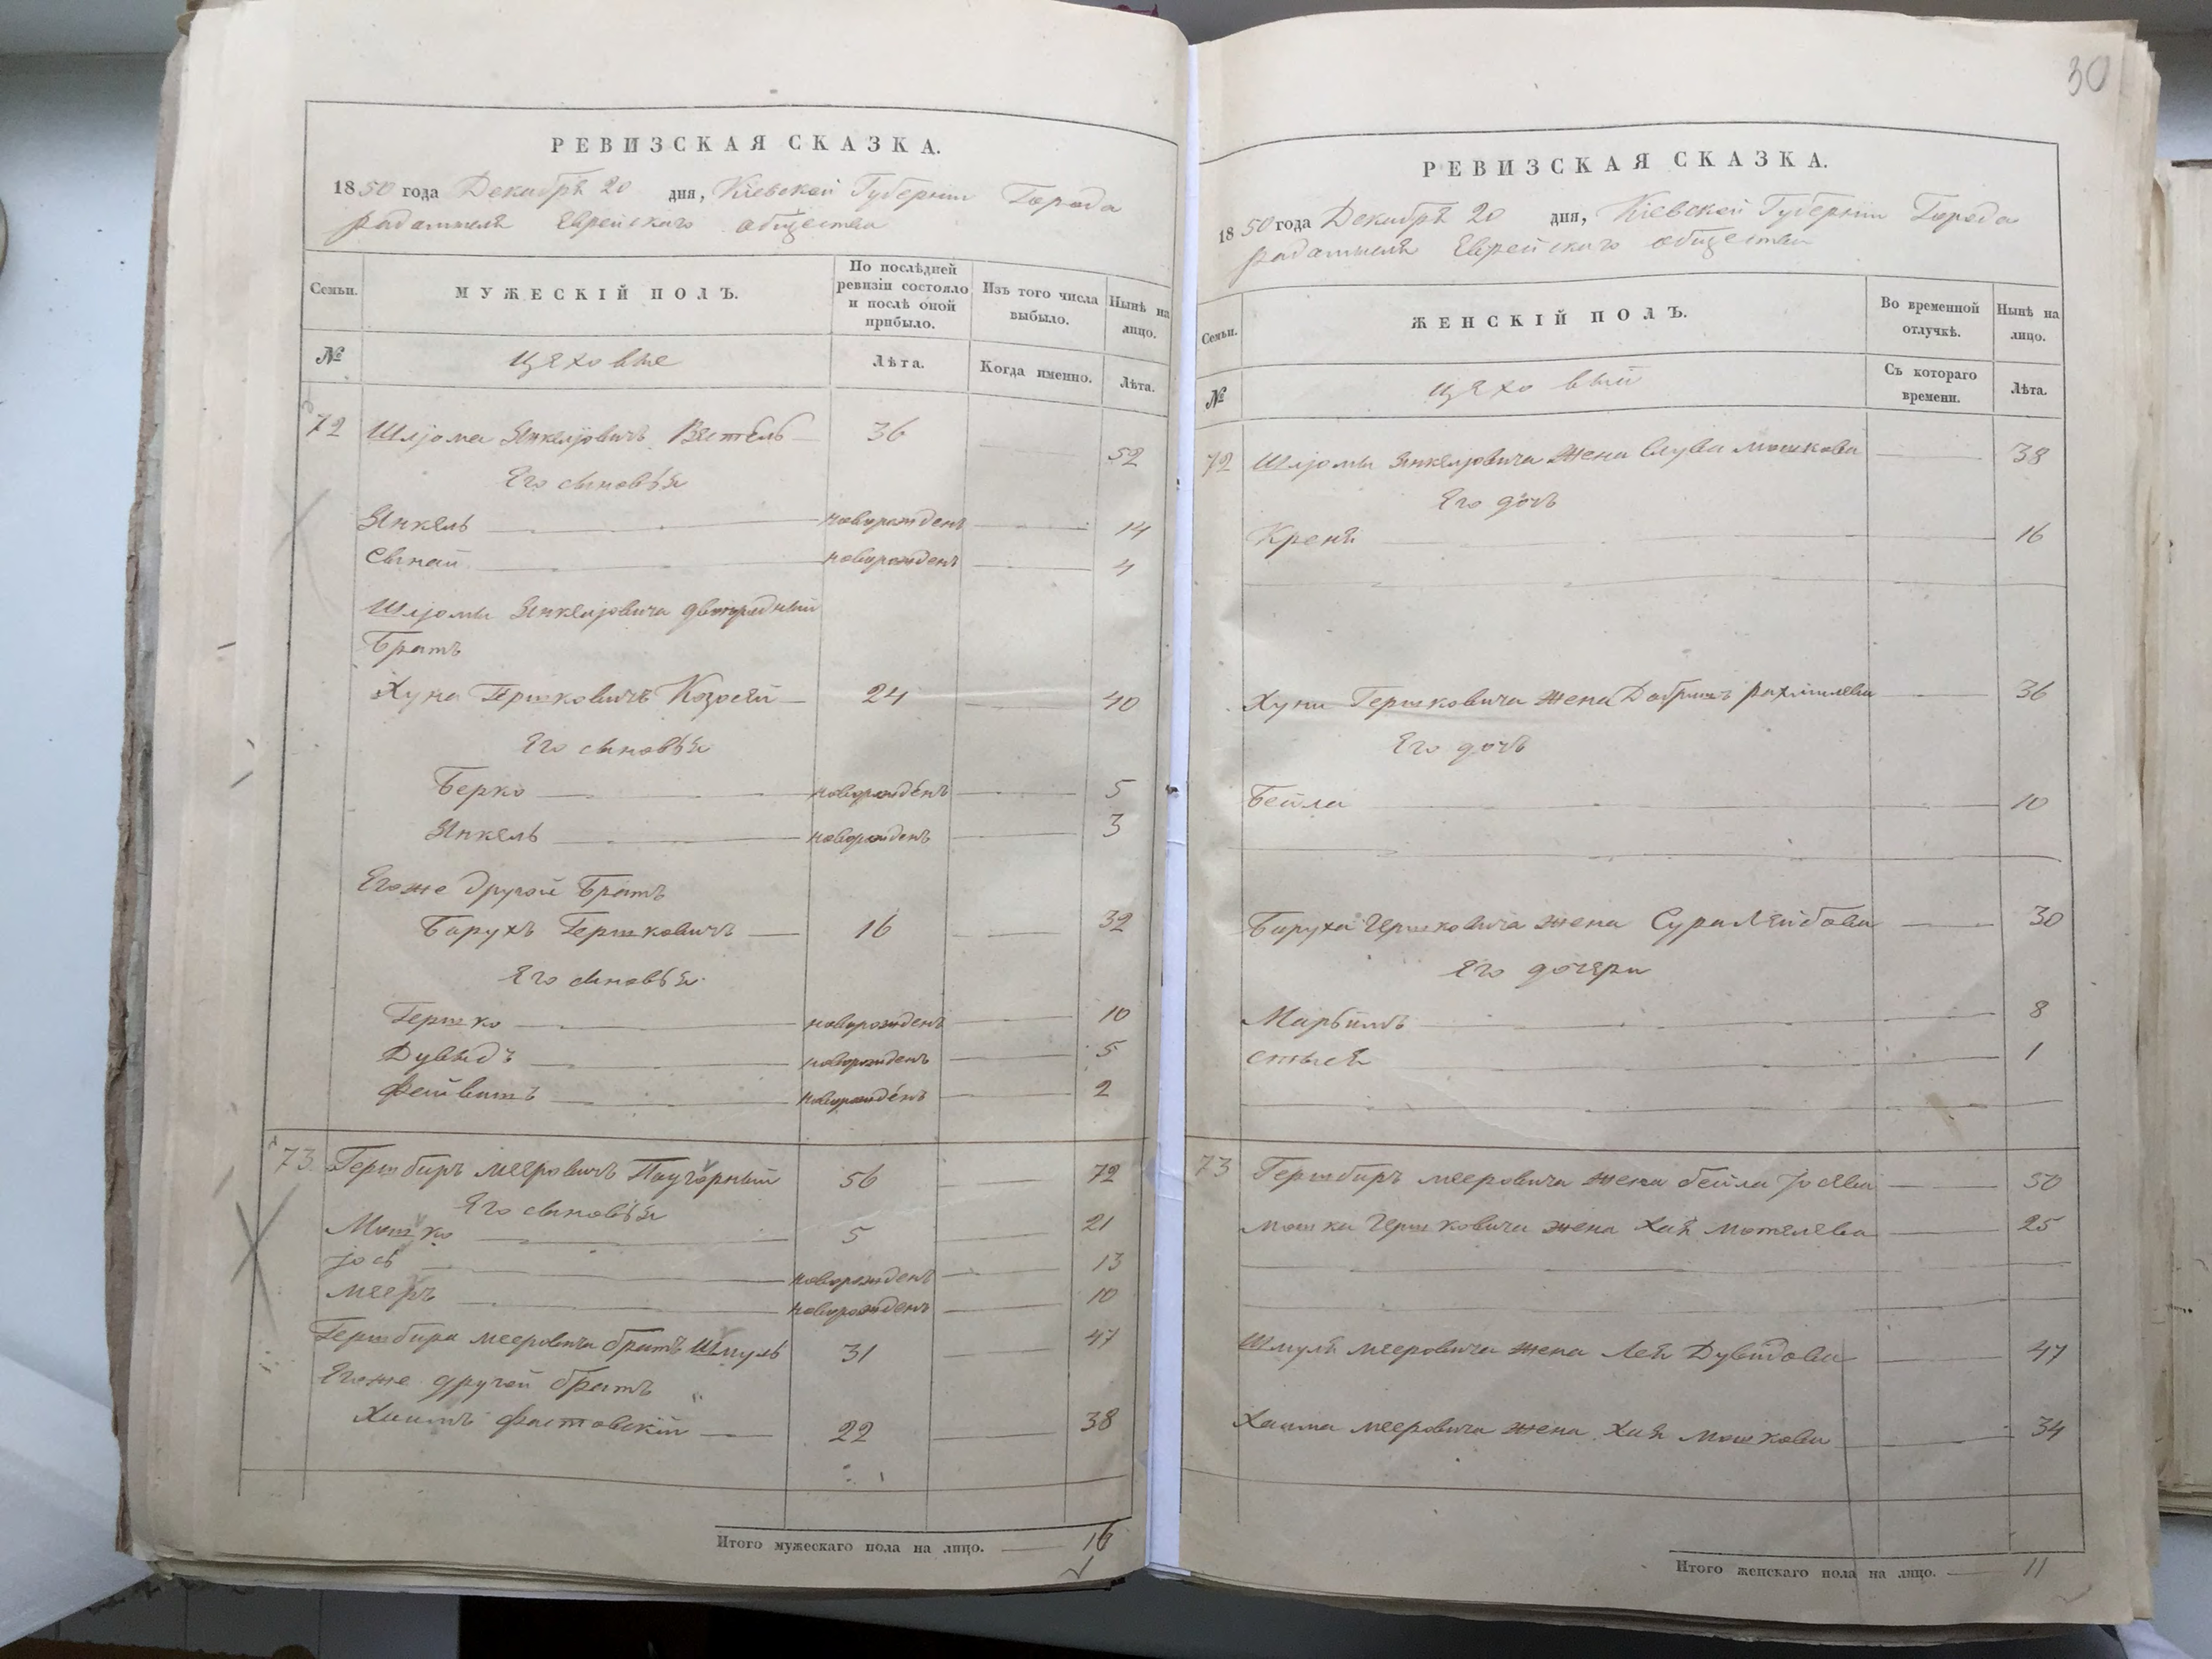 РЕВИЗСКАЯ СКАЗКА.
1850 года Декабря 20 дня, Кіевской Губерніи Города
Радомысля Еврейскаго общества
Семьи.
МУЖЕСКІЙ ПОЛЪ.
По послѣдней ревизіи состояло и послѣ оной прибыло.
Изъ того числа выбыло.
Нынѣ на лицо.
№
Цеховые
Лѣта.
Когда именно.
Лѣта.
72 Шлјома Янкелјовичъ 36 52
Его сыновья
Янкель новорожденъ 14
Сынай новорожденъ 4
Шлјомы Янкелјовича двоюродный
Братъ
Хуна Гершковичъ 24 40
Его сыновья
Берко новорожденъ 5
Янкель новорожденъ 3
Егоже другой Братъ
Барухъ Гершковичъ 16 32
Его сыновья
Гершко новорожденъ 10
Дувидъ новорожденъ 5
Фейвишъ новорожденъ 2
73 Гершбиръ Мееровичъ 56 72
Его сыновья
Мошко 5 21
Јось новорожденъ 13
Мееръ новорожденъ 10
Гершбира Мееровича братъ Шмуль 31 47
Егоже другой братъ
Хаимъ Фастовскій 22 38
Итого мужескаго пола на лицо. 16
30
РЕВИЗСКАЯ СКАЗКА.
1850 года Декабря 20 дня, Кіевской Губерніи Города
Радомысля Еврейскаго общества
Семьи.
ЖЕНСКІЙ ПОЛЪ.
Во временной отлучкѣ.
Нынѣ на лицо.
№
Цеховый
Съ котораго времени.
Лѣта.
72 Шлјомы Янкелјовича жена Слува Мошкова 38
Его дочь
Креня 16
Хуны Гершковича жена Добришъ Рахмилева 36
Его дочь
Бейла 10
Баруха Гершковича жена Сура Лейбова 30
Его дочери
Марьимъ 8
Стыся 1
73 Гершбиръ Мееровича жена Бейла Јосева 50
Мошка Гершковича жена Хая Мотелева 25
Шмуля Мееровича жена Лея Дувидова 47
Хаима Мееровича жена Хая Мошкова 34
Итого женскаго пола на лицо. 11